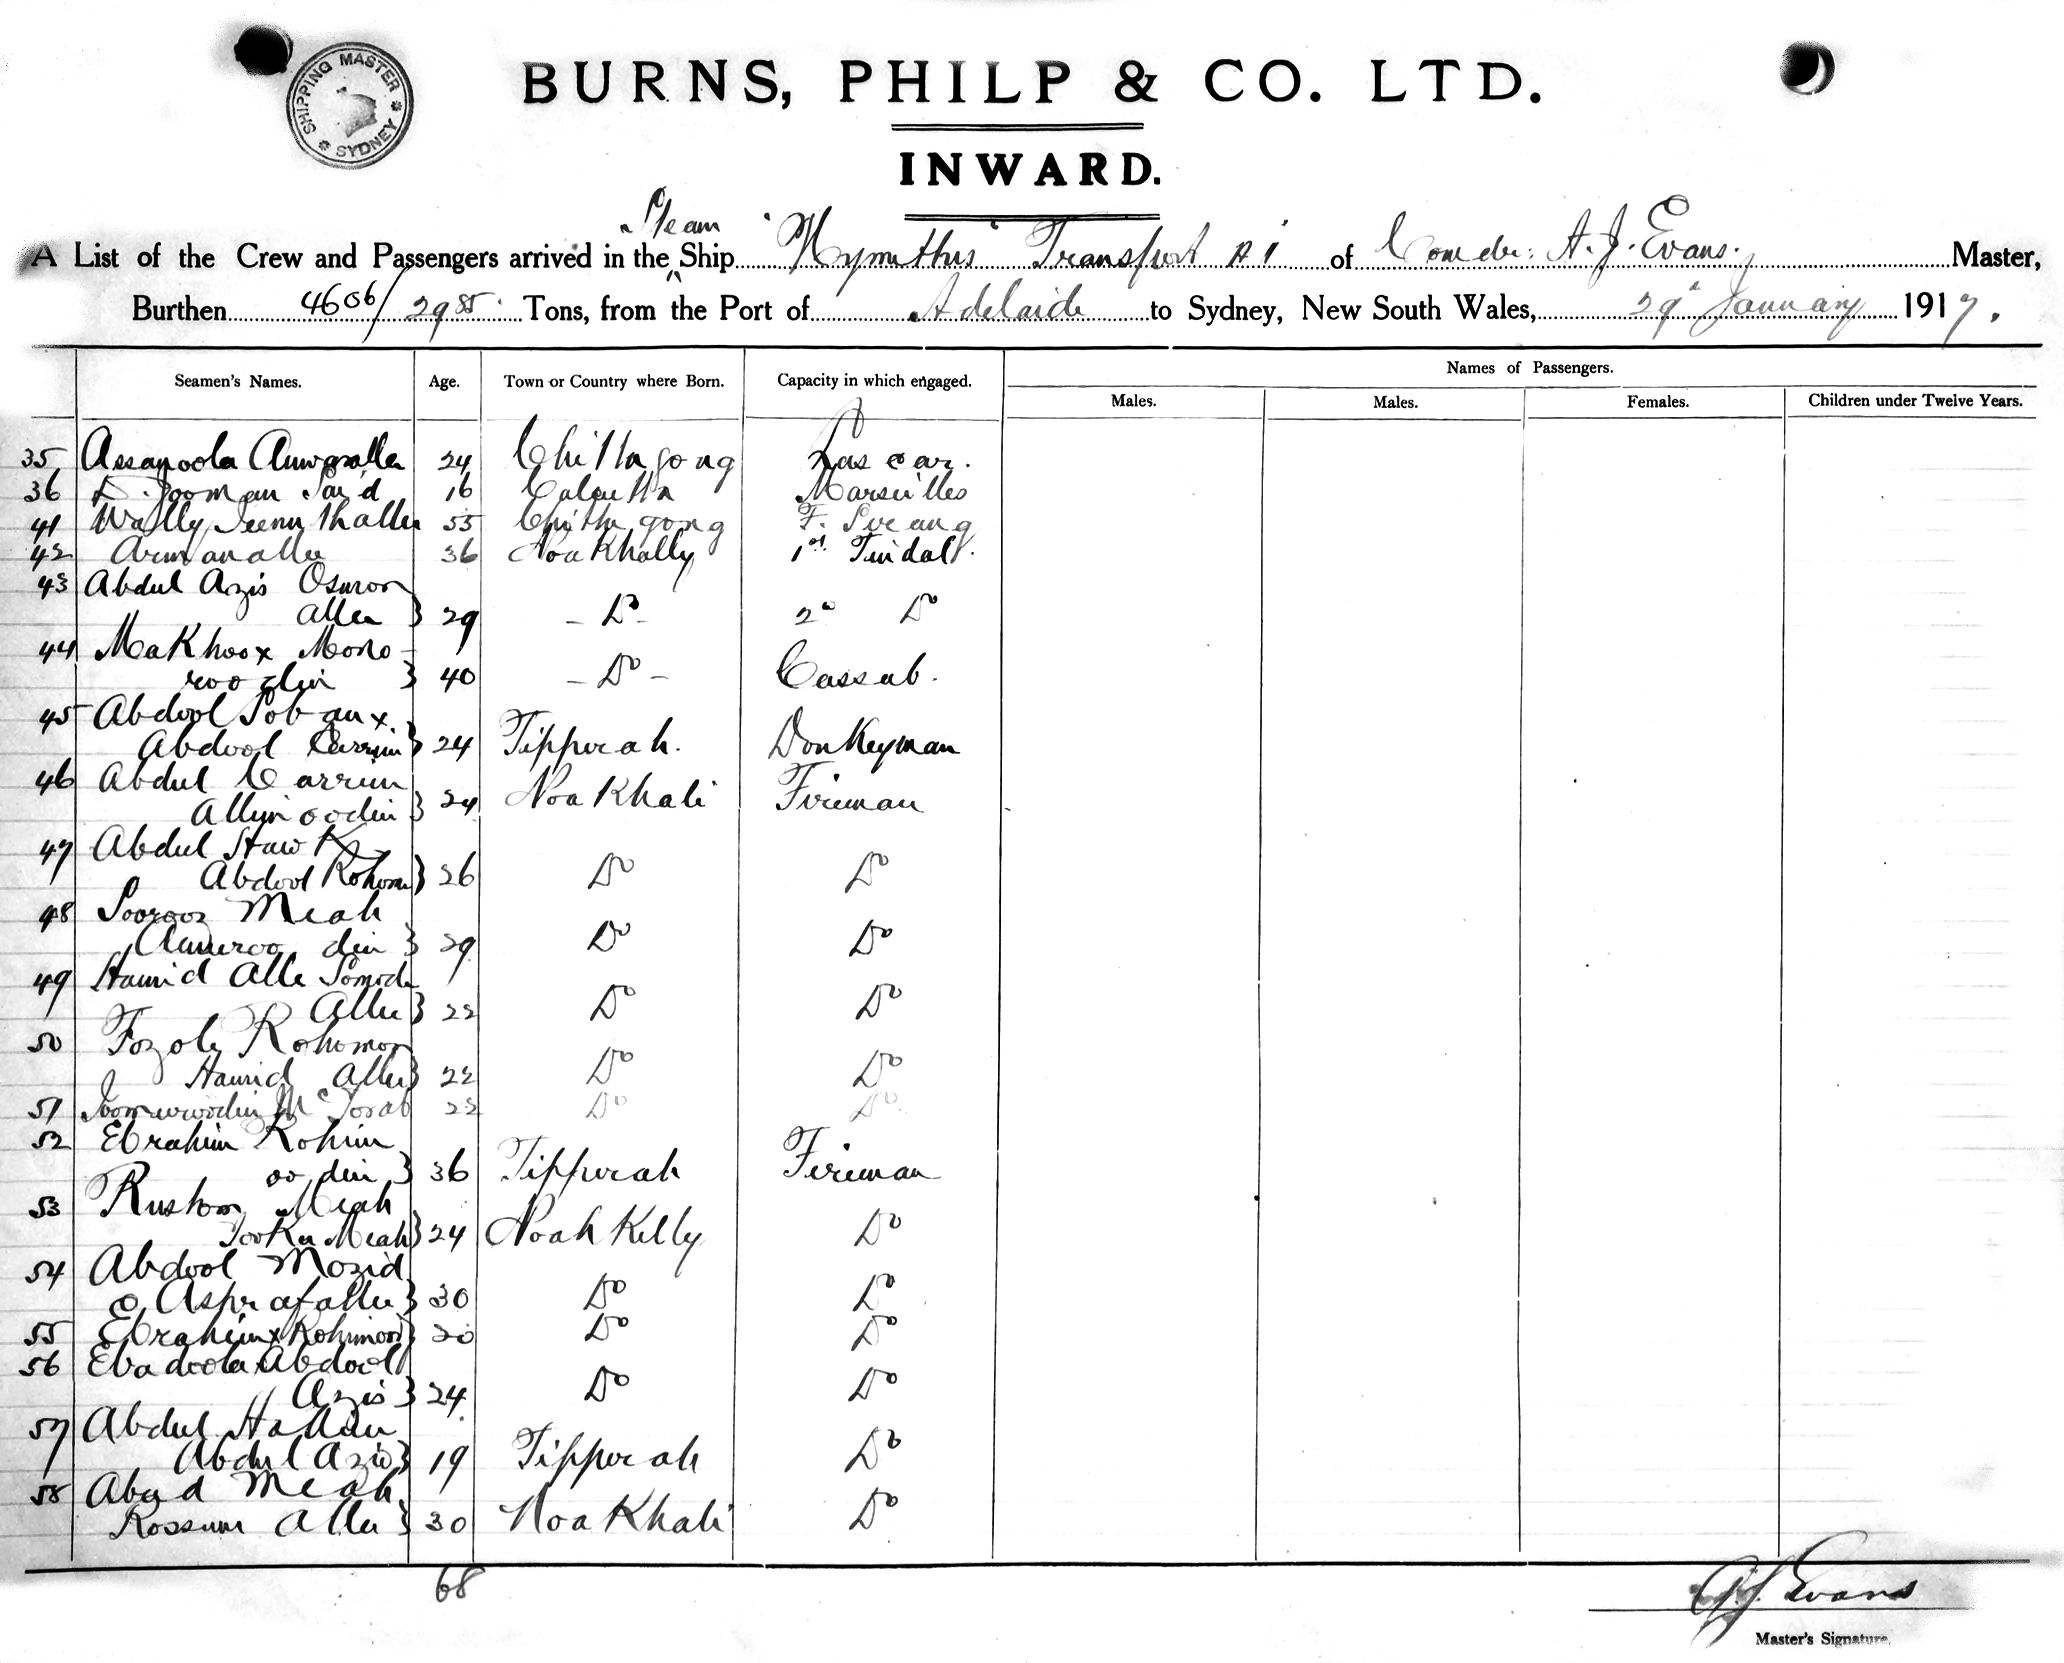 SHIPPING MASTER
SYDNEY
BURNS, PHILP & CO. LTD.
INWARD.
Steam
A List of the Crew and Passengers arrived in the Ship "Hymettus" Transport A1 of Comdr: A. J. Evans. Master,
Burthen 4606/2985 Tons, from the Port of Adelaide to Sydney, New South Wales, 29th January 1917.
Seamen's Names. Age. Town or Country where Born. Capacity in which engaged. Names of Passengers.
Males. Males. Females. Children under Twelve Years.
35 Assanoola Anwaralla 24 Chittagong Lascar.
36 D. Jooman Said 16 Calcutta Marseilles
41 Wally 55 Chittagong F. Serang
42 Armanallee 36 Noakhally 1st Tindall.
43 Abdul Azis Osmon
Allee } 29 - Do - 2o Do
44 Makhoox Mono-
roodin } 40 - Do - Cassab.
45 Abdool Sobanx
Abdool Carrim } 24 Tipperah. Donkeyman
46 Abdul Carrim
Allimoodin } 24 Noakhali Fireman
47 Abdul Hawk
Abdool Rohom } 26 Do Do
48 Sooroox Meah
Ameeroo din } 29 Do Do
49 Hamid Alle Somode
Allee } 22 Do Do
50 Fozole Rohomon
Hamid Allee } 22 Do Do
51 Torab 22 Do Do
52 Ebrahim Rohim
oo din } 36 Tipperah Fireman
53 Rustom Meah
Tooku Meah } 24 Noahkelly Do
54 Abdool Mozid
Asprafallee } 30 Do Do
55 Ebrahimx Rohimood } 20 Do Do
56 Ebadoola Abdool
Azis } 24 Do Do
57 Abdul Hallim
Abdul Azis } 19 Tipperah Do
58 Abad Meah
Rossum Allee } 30 Noakhali Do
68
A. J. Evans
Master's Signature.